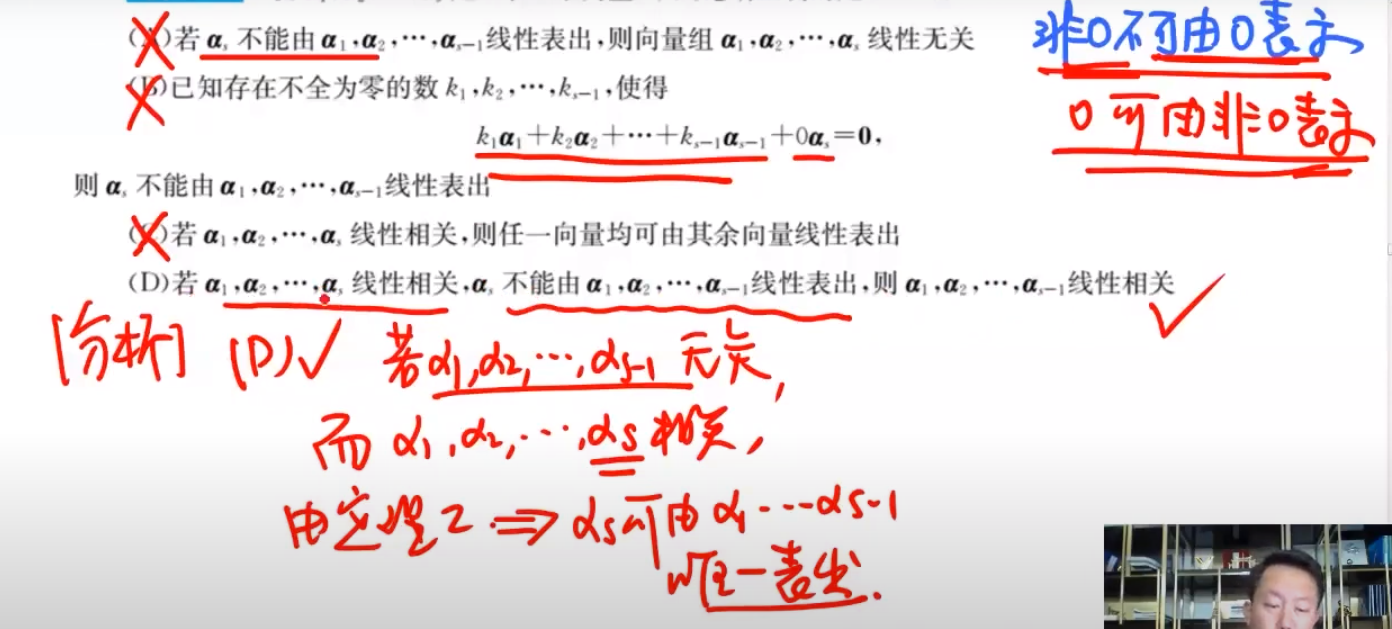 (A)若 α_s 不能由 α₁,α₂,⋯,α_{s-1}线性表出,则向量组 α₁,α₂,⋯,α_s 线性无关
非0不可由0表示
(B)已知存在不全为零的数 k₁,k₂,⋯,k_{s-1},使得
0可由非0表示
k₁α₁+k₂α₂+⋯+k_{s-1}α_{s-1}+0α_s=0,
则 α_s 不能由 α₁,α₂,⋯,α_{s-1}线性表出
(C)若 α₁,α₂,⋯,α_s 线性相关,则任一向量均可由其余向量线性表出
(D)若 α₁,α₂,⋯,α_s 线性相关,α_s 不能由 α₁,α₂,⋯,α_{s-1}线性表出,则 α₁,α₂,⋯,α_{s-1}线性相关
[分析] (D)✓ 若α₁,α₂,⋯,α_{s-1} 无关,
而 α₁,α₂,⋯,α_s 相关,
由定理2 ⇒ α_s可由 α₁⋯α_{s-1}
唯一表出.